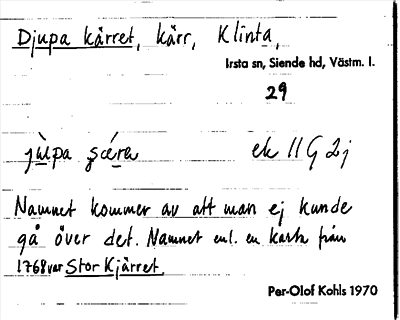 Djupa kärret, kärr, Klinta,
Irsta sn, Siende hd, Västm. l.
29
jùlpa ek 11 G 2j
Namnet kommer av att man ej kunde
gå över det. Namnet enl. en karta från
1768 var Stor Kjärret.
Per-Olof Kohls 1970